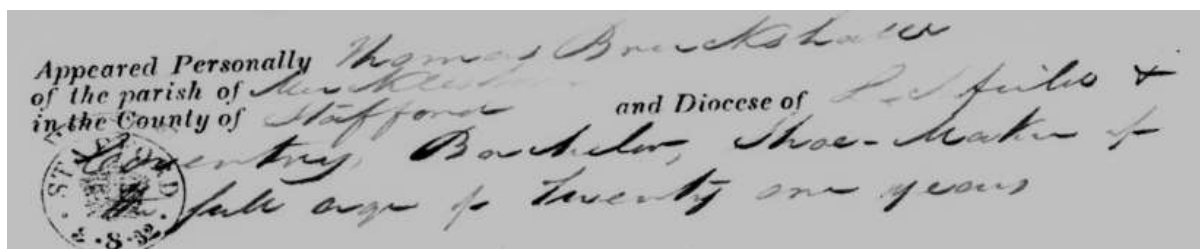 Appeared Personally Thomas Bruckshaw
of the parish of Mucklestone
in the County of Stafford and Diocese of Lichfield &
Coventry, Bachelor, Shoe-Maker of
the full age of twenty one years
STAFFORD
8-32